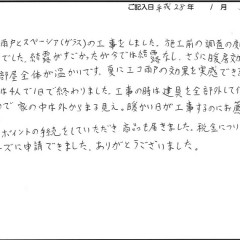 ご記入日 平成28年 1月
雨戸とスペーシア(ガラス)の工事をしました。施工前の調査の
でした。結露がすごかったが今では結露なし、さらに暖房効
部屋全体が温かいです。夏にエコ雨戸の効果を実感でき
は4人で1日で終わりました。工事の時は建具を全部外して
ので家の中は外からまる見え。暖かい日が工事するのにお薦
ポイントの手続をしていただき商品も届きました。税金につ
ズに申請できました。ありがとうございました。